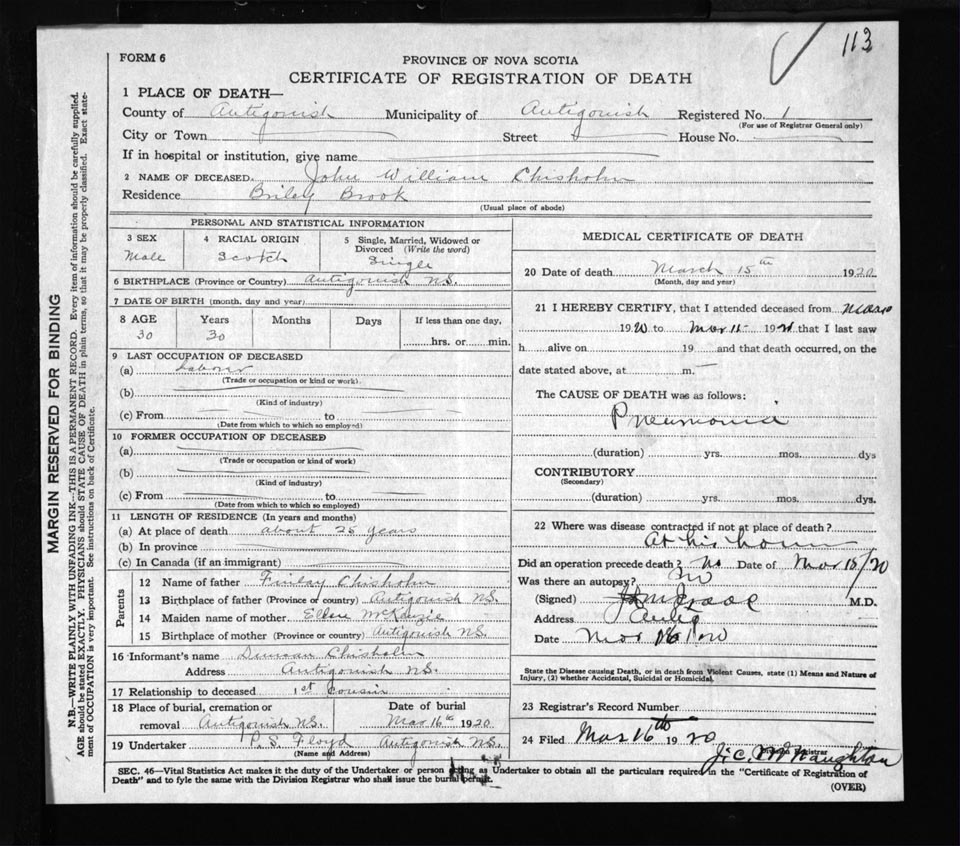 113
FORM 6
PROVINCE OF NOVA SCOTIA
CERTIFICATE OF REGISTRATION OF DEATH
1 PLACE OF DEATH—
County of Antigonish Municipality of Antigonish Registered No. 1
(For use of Registrar General only)
City or Town Street House No.
If in hospital or institution, give name
2 NAME OF DECEASED. John William Chisholm
Residence Briley Brook
(Usual place of abode)
PERSONAL AND STATISTICAL INFORMATION
3 SEX 4 RACIAL ORIGIN 5 Single, Married, Widowed or Divorced (Write the word)
Male Scotch Single
6 BIRTHPLACE (Province or Country) Antigonish N.S.
7 DATE OF BIRTH (month, day and year)
8 AGE Years Months Days If less than one day,
30 30 hrs. or min.
9 LAST OCCUPATION OF DECEASED
(a) Labour
(Trade or occupation or kind or work)
(b)
(Kind of industry)
(c) From to
(Date from which to which so employed)
10 FORMER OCCUPATION OF DECEASED
(a)
(Trade or occupation or kind of work)
(b)
(Kind of industry)
(c) From to
(Date from which to which so employed)
11 LENGTH OF RESIDENCE (In years and months)
(a) At place of death about 25 years
(b) In province
(c) In Canada (if an immigrant)
Parents
12 Name of father Finlay Chisholm
13 Birthplace of father (Province or country) Antigonish N.S.
14 Maiden name of mother Ellen McKenzie
15 Birthplace of mother (Province or country) Antigonish N.S.
16 Informant's name Duncan Chisholm
Address Antigonish N.S.
17 Relationship to deceased 1st Cousin
18 Place of burial, cremation or removal Antigonish N.S.
Date of burial
Mar 16th 1920
19 Undertaker P.S. Floyd Antigonish N.S.
(Name and Address)
MEDICAL CERTIFICATE OF DEATH
20 Date of death March 15th 1920
(Month, day and year)
21 I HEREBY CERTIFY, that I attended deceased from
1920 to Mar 1920 that I last saw
h alive on 19 and that death occurred, on the
date stated above, at m.
The CAUSE OF DEATH was as follows:
Pneumonia
(duration) yrs. mos. dys
CONTRIBUTORY
(Secondary)
(duration) yrs. mos. dys.
22 Where was disease contracted if not at place of death?
At his home
Did an operation precede death? No Date of Mar 15/20
Was there an autopsy? No
(Signed) M.D.
Address Antig
Date Mar 16
State the Disease causing Death, or in death from Violent Causes, state (1) Means and Nature of
Injury, (2) whether Accidental, Suicidal or Homicidal.
23 Registrar's Record Number
24 Filed Mar 16th 1920
J.C. McNaughton
SEC. 46—Vital Statistics Act makes it the duty of the Undertaker or person acting as Undertaker to obtain all the particulars required in the "Certificate of Registration of
Death" and to fyle the same with the Division Registrar who shall issue the burial permit.
(OVER)
MARGIN RESERVED FOR BINDING
N.B.—WRITE PLAINLY, WITH UNFADING INK—THIS IS A PERMANENT RECORD. Every item of information should be carefully supplied.
AGE should be stated EXACTLY. PHYSICIANS should STATE CAUSE OF DEATH in plain terms, so that it may be properly classified. Exact state-
ment of OCCUPATION is very important. See instructions on back of Certificate.